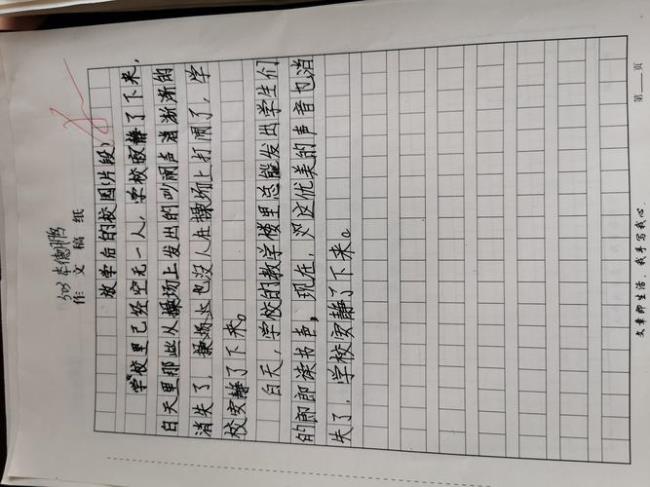 作 文 稿 纸
放学后的校园(片段)
学校里已经空无一人,学校寂静了下来,
白天里那些从操场上发出的吵闹声消渐渐的
消失了,操场上也没人在操场上打闹了,学
校安静了下来。
白天,学校的教学楼里总能发出学生们
的郎郎读书声,现在,这优美的声音也消
失了,学校安静了下来。
文章即生活,我手写我心。
第 页